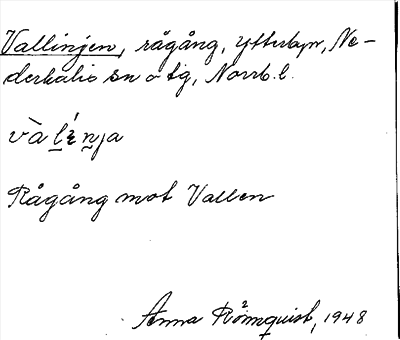 Vallinjen, rågång, Ytterbyn, Ne-
derkalix sn o tg, Norrb. l.
Rågång mot Vallen
Anna Rönnquist, 1948